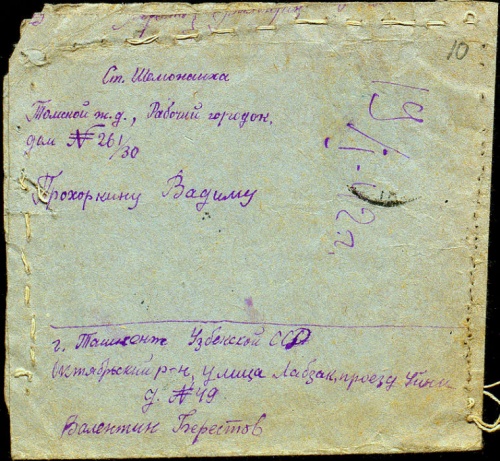 10
Ст. Шемонаиха
Томской ж.д., Рабочий городок,
дом № 261/30
Прохоркину Вадиму
19/I-42г.
г. Ташкент Узбекской ССР
Октябрьский р-н, улица Лабзак, проезд
д. № 49
Валентин Берестов